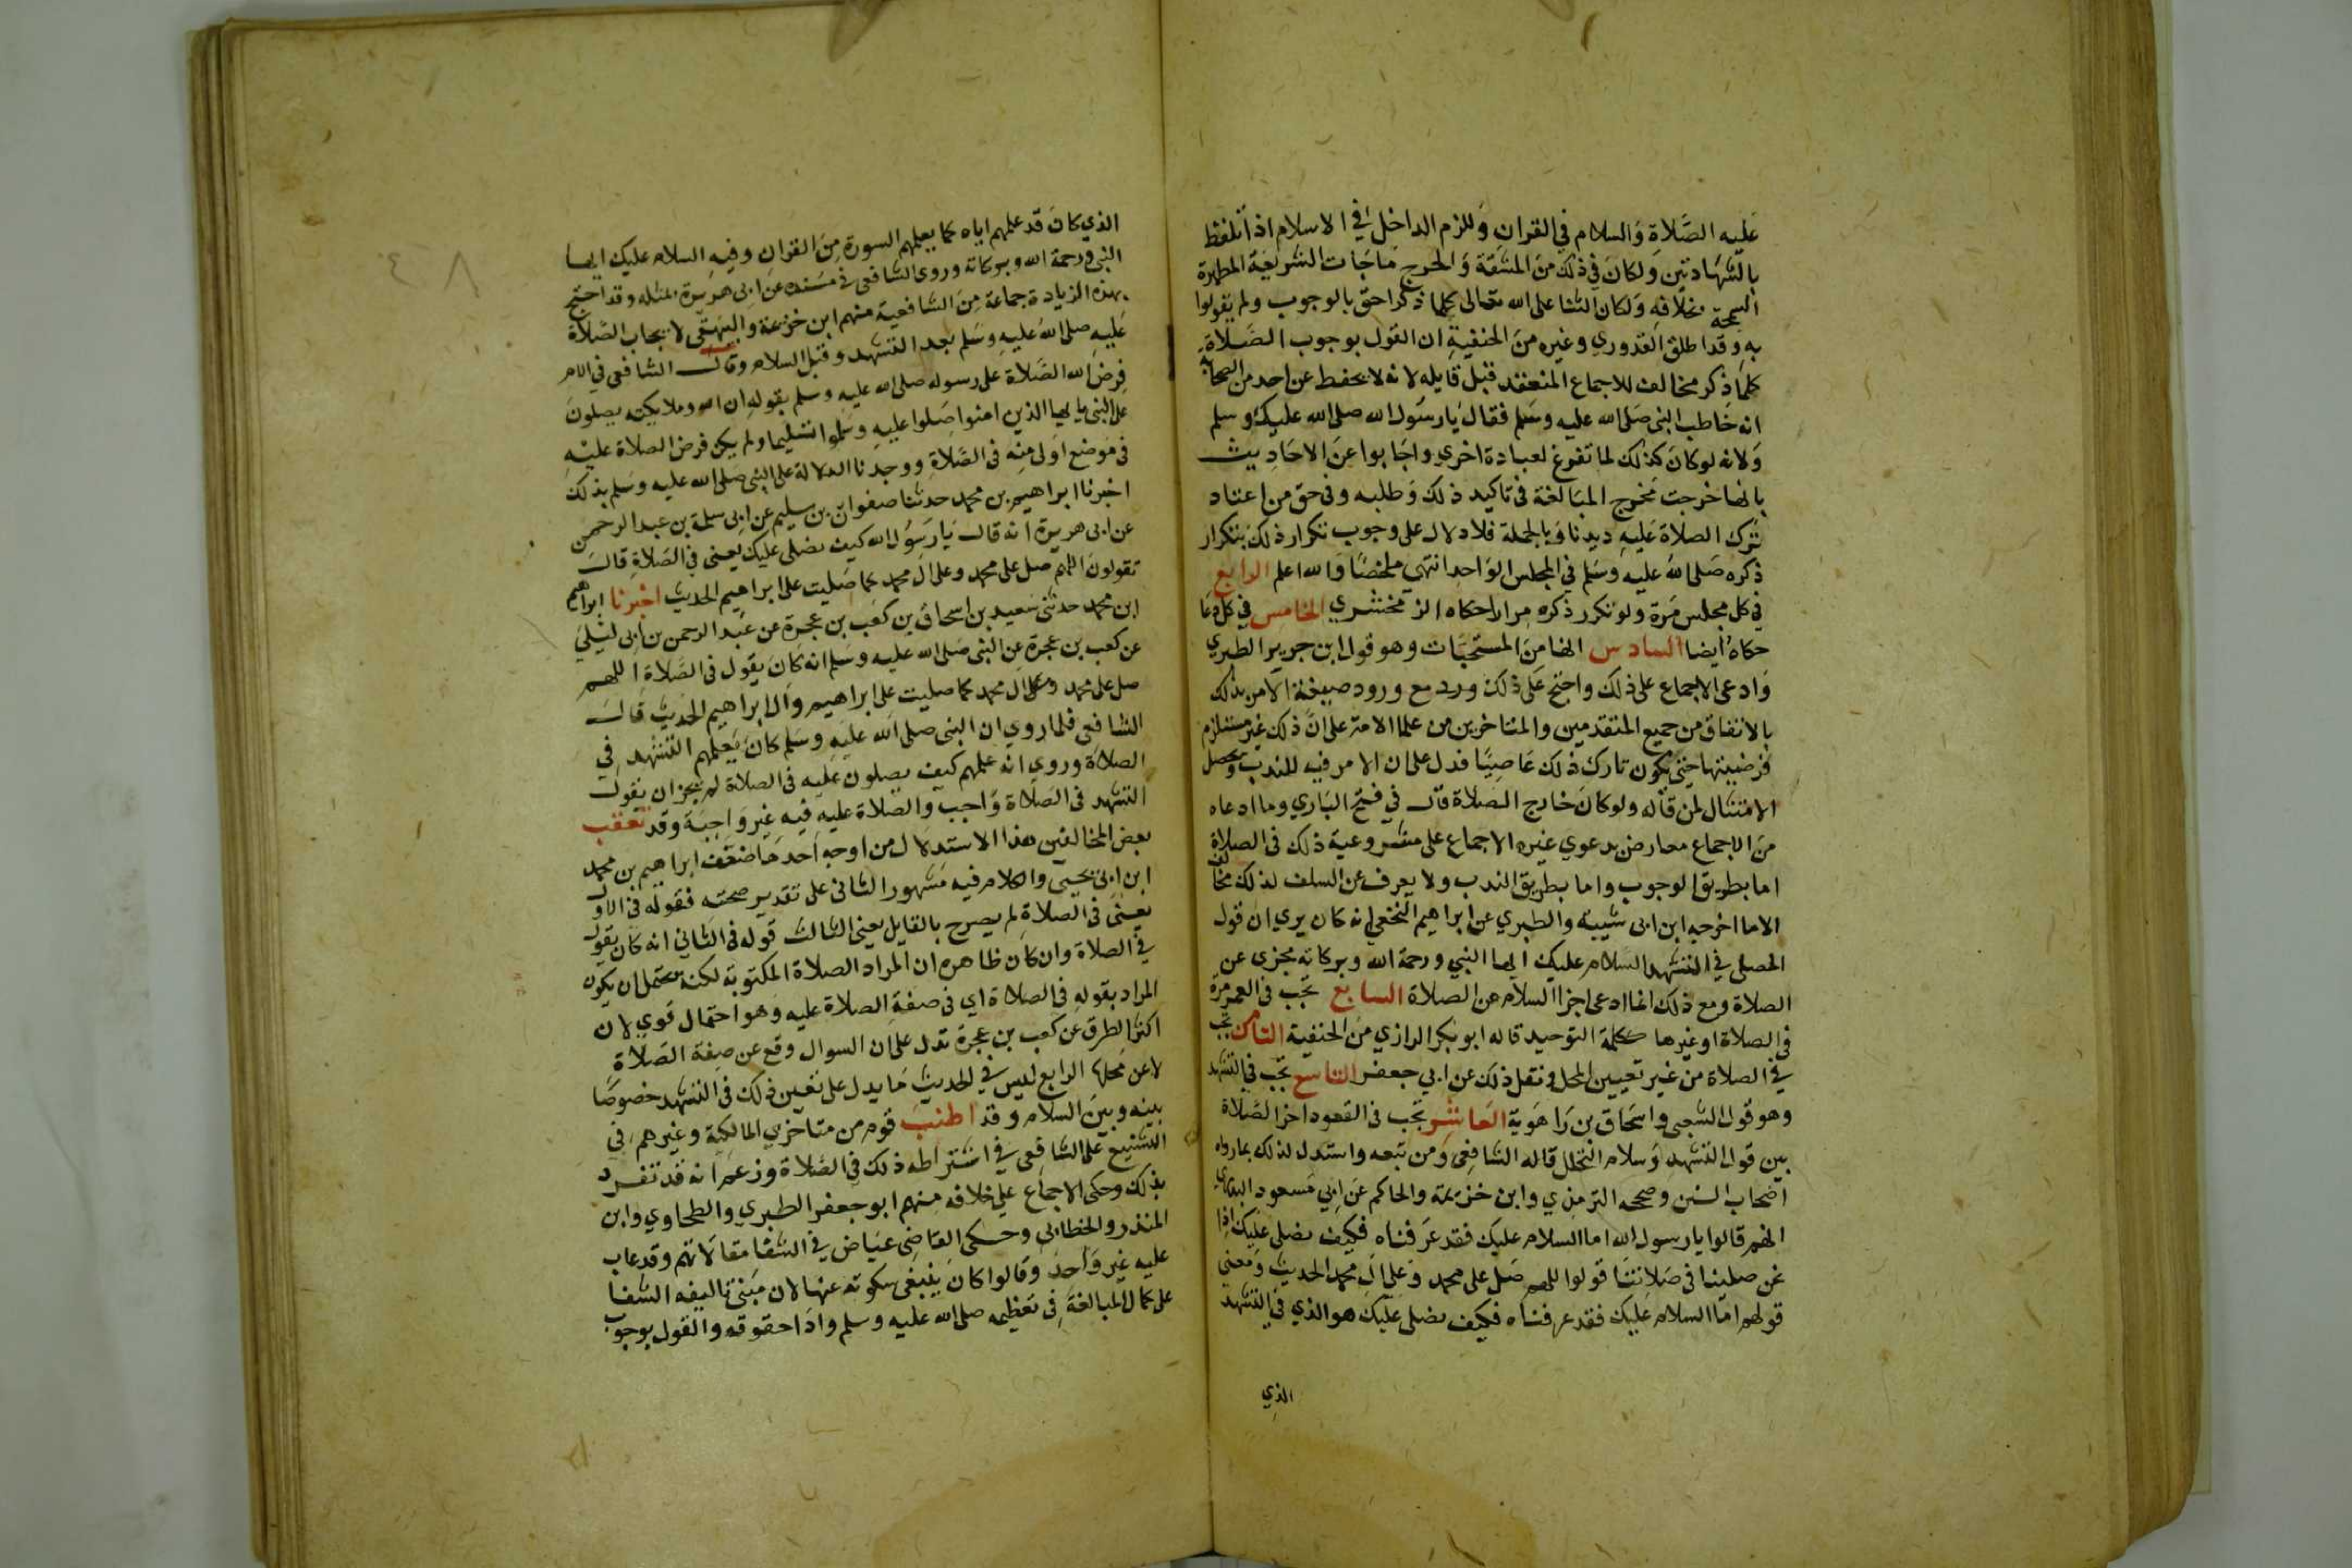 عليه الصلاة والسلام في القران وللزم الداخل في الاسلام اذا تلفظ
بالشهادتين ولكان في ذلك من المشقة والحرج ماجات الشريعة المطهرة
السمحة بخلافه ولكان الثنا على الله تعالى كلما ذكر احق بالوجوب ولم يقولوا
به وقد اطلق القدوري وغيره من الحنفية ان القول بوجوب الصلاة
كلما ذكر مخالف للاجماع المنعقد قبل قايله لانه لا يحفظ عن احد من الصحابة
انه خاطب النبي صلى الله عليه وسلم فقال يا رسول الله صلى الله عليك وسلم
ولانه لو كان كذلك لما تفرغ لعبادة اخري واجابوا عن الاحاديث
بانها خرجت مخرج المبالغة في تاكيد ذلك وطلبه وفي حق من اعتاد
ترك الصلاة عليه ديدنا وبالجملة فلا دلال على وجوب تكرار ذلك بتكرار
ذكره صلى الله عليه وسلم في المجلس الواحد انتهي ملخصا والله اعلم الرابع
في كل مجلس مرة ولو تكرر ذكره مرارا حكاه الزمخشري الخامس في كل دعا
حكاه ايضا السادس انها من المستحبات وهو قول ابن جرير الطبري
وادعى الاجماع على ذلك واحتج على ذلك ورد مع ورود صيغة الامر بذلك
بالاتفاق من جميع المتقدمين والمتاخرين من علما الامة على ان ذلك غير مستلزم
فرضيتها حتى يكون تارك ذلك عاصيا فدل على ان الامر فيه للندب ويحصل
الامتثال لمن قاله ولو كان خارج الصلاة قال في فتح الباري وما ادعاه
من الاجماع معارض بدعوي غيره الاجماع على مشروعية ذلك في الصلاة
اما بطريق الوجوب واما بطريق الندب ولا يعرف عن السلف لذلك مخالف
الا ما اخرجه ابن ابي شيبه والطبري عن ابراهيم النخعي انه كان يري ان قول
المصلي في التشهد السلام عليك ايها النبي ورحمة الله وبركاته يجزي عن
الصلاة ومع ذلك انما ادعى اجزا السلام عن الصلاة السابع تجب في العمر مرة
في الصلاة او غيرها ككلمة التوحيد قاله ابو بكر الرازي من الحنفية الثامن تجب
في الصلاة من غير تعيين المحل ونقل ذلك عن ابي جعفر التاسع تجب في التشهد
وهو قول الشعبي واسحاق بن راهوية العاشر تجب في القعود اخر الصلاة
بين قول التشهد وسلام التحلل قاله الشافعي ومن تبعه واستدل لذلك بما رواه
اصحاب السنن وصححه الترمذي وابن خزيمة والحاكم عن ابي مسعود البدري
انهم قالوا يا رسول الله اما السلام عليك فقد عرفناه فكيف نصلي عليك اذا
نحن صلينا في صلاتنا قولوا اللهم صل على محمد وعلى ال محمد الحديث ومعني
قولهم اما السلام عليك فقد عرفناه فكيف نصلي عليك هو الذي في التشهد
الذي
٤٨
الذي كان قد علمهم اياه كما يعلمهم السورة من القران وفيه السلام عليك ايها
النبي ورحمة الله وبركاته وروي الشافعي في مسنده عن ابي هريرة بمثله وقد احتج
بهذه الزيادة جماعة من الشافعية منهم ابن خزيمة والبيهقي لا يجاب الصلاة
عليه صلى الله عليه وسلم بعد التشهد وقبل السلام وقال الشافعي في الام
فرض الله الصلاة على رسوله صلى الله عليه وسلم بقوله ان الله وملايكته يصلون
على النبي يا ايها الذين امنوا صلوا عليه وسلموا تسليما ولم يكن فرض الصلاة عليه
في موضع اولى منه في الصلاة ووجدنا الدلالة على النبي صلى الله عليه وسلم بذلك
اخبرنا ابراهيم بن محمد حدثنا صفوان بن سليم عن ابي سلمة بن عبد الرحمن
عن ابي هريرة انه قال يا رسول الله كيف نصلي عليك يعني في الصلاة قال
تقولون اللهم صل على محمد وعلى ال محمد كما صليت على ابراهيم الحديث اخبرنا ابراهيم
ابن محمد حدثني سعيد بن اسحاق بن كعب بن عجرة عن عبد الرحمن بن ابي ليلي
عن كعب بن عجرة عن النبي صلى الله عليه وسلم انه كان يقول في الصلاة اللهم
صل على محمد وعلى ال محمد كما صليت على ابراهيم وال ابراهيم الحديث قال
الشافعي فلما روي ان النبي صلى الله عليه وسلم كان يعلمهم التشهد في
الصلاة وروي انه علمهم كيف يصلون عليه في الصلاة لم يجز ان نقول
التشهد في الصلاة واجب والصلاة عليه فيه غير واجبة وقد تعقب
بعض المخالفين هذا الاستدلال من اوجه احدها ضعف ابراهيم بن محمد
ابن ابي يحيى والكلام فيه مشهور الثاني على تقدير صحته فقوله في الاول
يعني في الصلاة لم يصرح بالقايل يعني الثالث قوله في الثاني انه كان يقول
في الصلاة وان كان ظاهره ان المراد الصلاة المكتوبة لكنه يحتمل ان يكون
المراد بقوله في الصلاة اي في صفة الصلاة عليه وهو احتمال قوي لان
اكثر الطرق عن كعب بن عجرة تدل على ان السوال وقع عن صفة الصلاة
لا عن محلها الرابع ليس في الحديث ما يدل على تعيين ذلك في التشهد خصوصا
بينه وبين السلام وقد اطنب قوم من متاخري المالكية وغيرهم في
التشنيع على الشافعي في اشتراطه ذلك في الصلاة وزعم انه قد تفرد
بذلك وحكى الاجماع على خلافه منهم ابو جعفر الطبري والطحاوي وابن
المنذر والخطابي وحكى القاضي عياض في الشفا مقالاتهم وقد عاب
عليه غير واحد وقالوا كان ينبغي سكوته عنها لان مبنى تاليفه الشفا
على كمال المبالغة في تعظيمه صلى الله عليه وسلم واداحقوقه والقول بوجوب